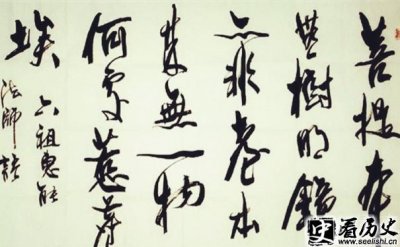 菩提本
無樹明鏡
亦非臺本
來無一物
何處惹塵
埃 六祖惠能
法師
看历史
www.seelishi.cn